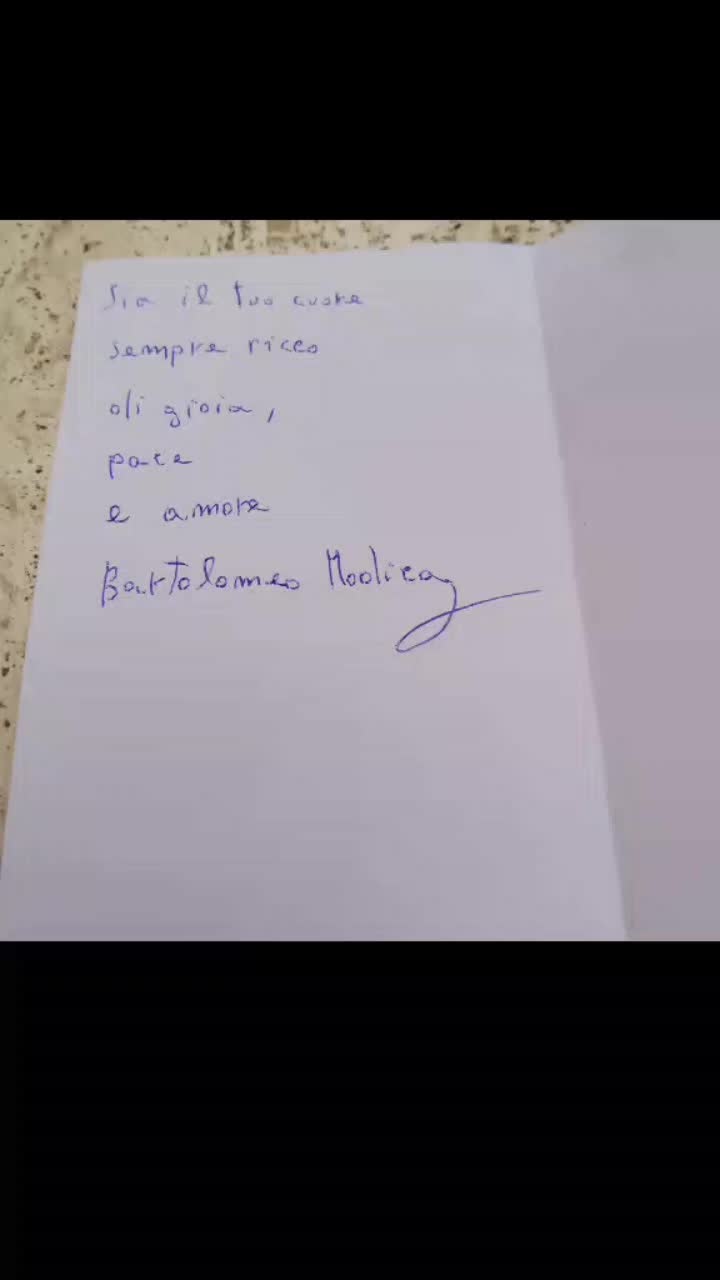 Sia il tuo cuore
sempre ricco
di gioia,
pace
e amore
Bartolomeo Modica